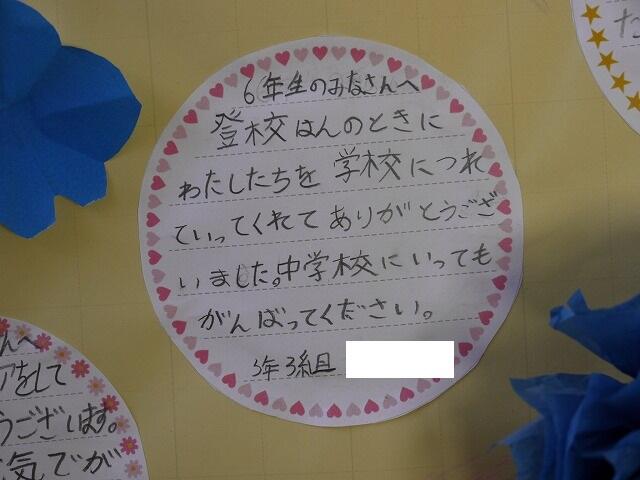 6年生のみなさんへ
登校はんのときに
わたしたちを 学校につれ
ていってくれて ありがとうござ
いました。中学校にいっても
がんばってください。
3年3組
んへ
アをして
うございます。
気でが
た